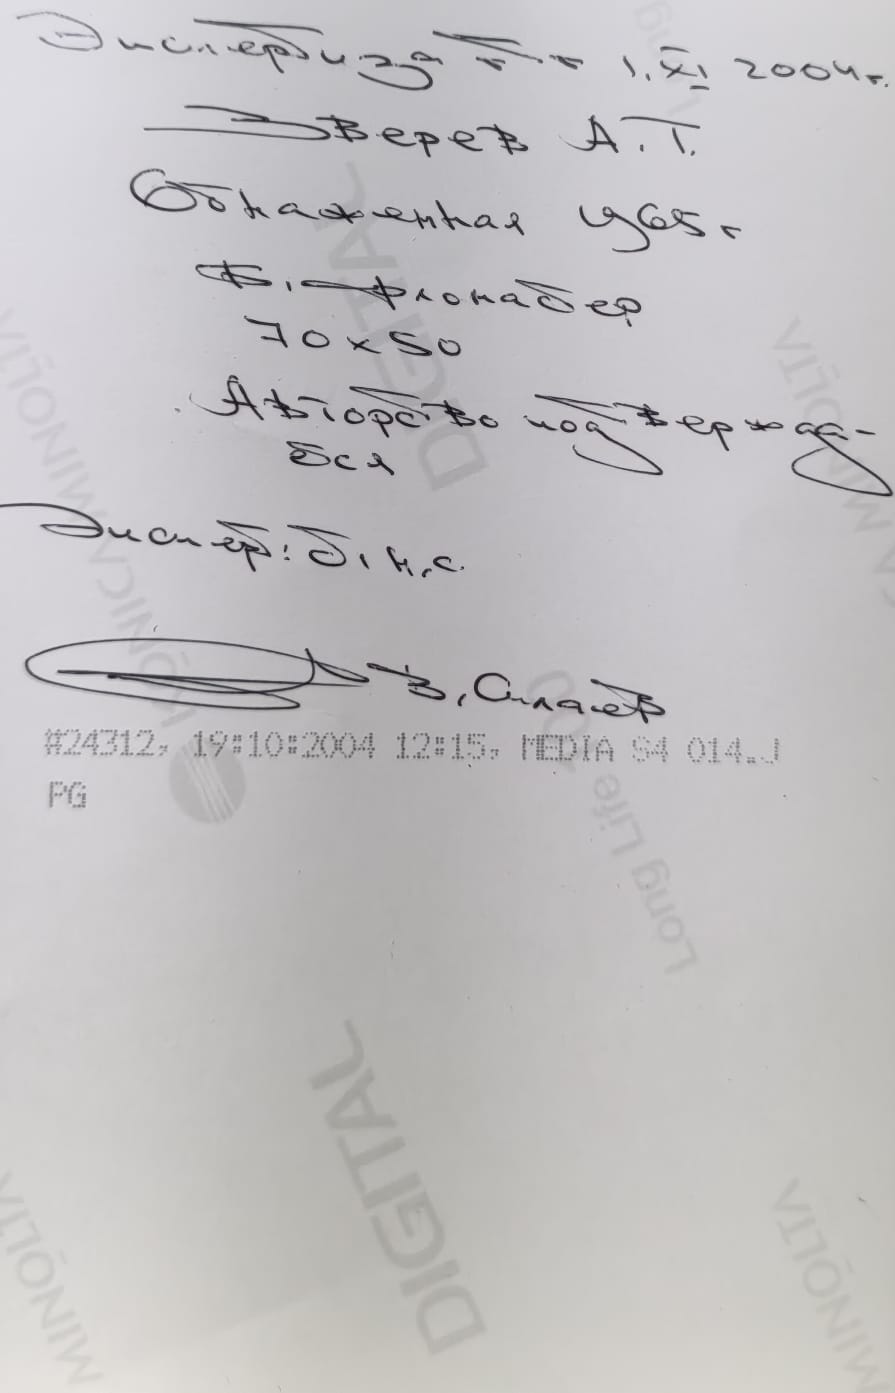 Экспертиза ГТГ 1.XI 2004г.
Зверев А.Т.
Обнаженная 1965г
Б., фломастер
70x50
Авторство подтвержда-
ется
Эксперт: с.н.с.
В. Силаев
#24312, 19:10:2004 12:15, MEDIA S4 014.J
PG
Long Life 100
DIGITAL
MINOLTA
KONICA MINOLTA
DIGITAL
MINOLTA
MINOLTA